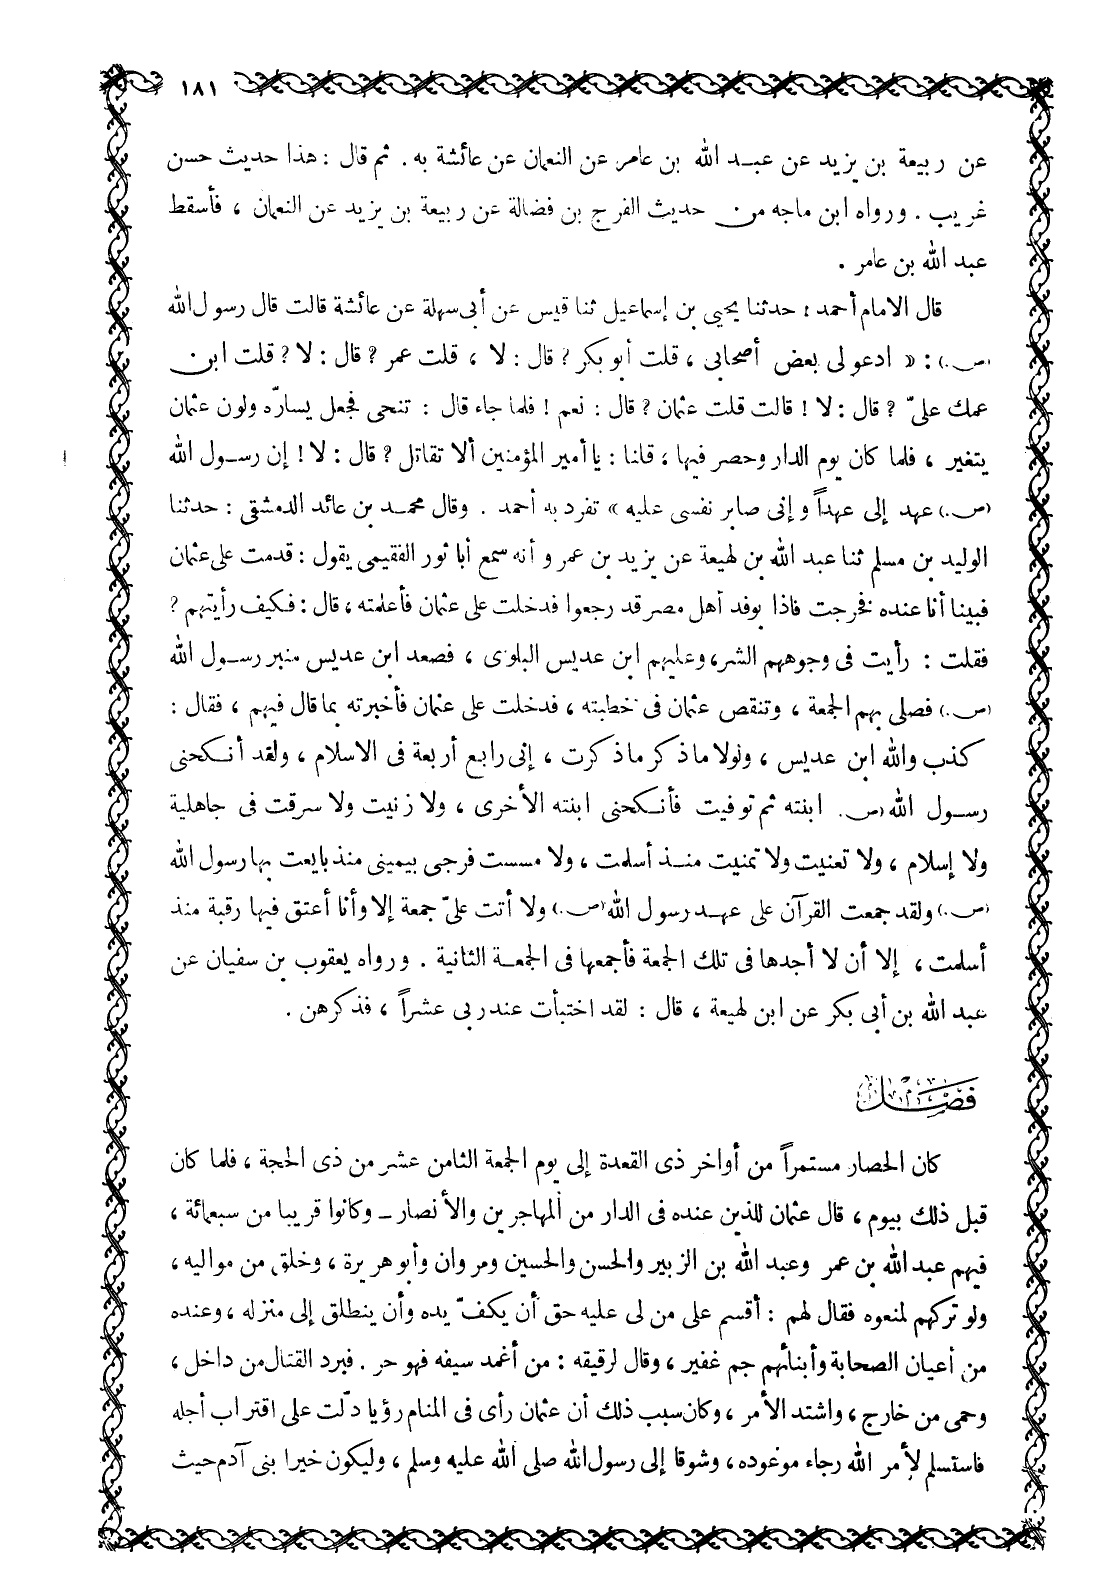 ١٨١
عن ربيعة بن يزيد عن عبد الله بن عامر عن النعمان عن عائشة به . ثم قال : هذا حديث حسن
غريب . ورواه ابن ماجه من حديث الفرج بن فضالة عن ربيعة بن يزيد عن النعمان ، فأسقط
عبد الله بن عامر .
قال الامام أحمد : حدثنا يحيى بن إسماعيل ثنا قيس عن أبى سهلة عن عائشة قالت قال رسول الله
(ص.) : « ادعو لى بعض أصحابى ، قلت أبو بكر ? قال : لا ، قلت عمر ? قال : لا ? قلت ابن
عمك علىّ ? قال : لا ! قالت قلت عثمان ? قال : نعم ! فلما جاء قال : تنحى فجعل يسارّه ولون عثمان
يتغير ، فلما كان يوم الدار وحصر فيها ، قلنا : يا أمير المؤمنين ألا تقاتل ? قال : لا ! إن رسول الله
(ص.) عهد إلى عهداً و إنى صابر نفسى عليه » تفرد به أحمد . وقال محمد بن عائد الدمشقى : حدثنا
الوليد بن مسلم ثنا عبد الله بن لهيعة عن يزيد بن عمر و أنه سمع أبا ثور الفقيمى يقول : قدمت على عثمان
فبينا أنا عنده فخرجت فاذا بوفد أهل مصر قد رجعوا فدخلت على عثمان فأعلمته ، قال : فكيف رأيتهم ?
فقلت : رأيت فى وجوههم الشر، وعليهم ابن عديس البلوى ، فصعد ابن عديس منبر رسول الله
(ص.) فصلى بهم الجمعة ، وتنقص عثمان فى خطبته ، فدخلت على عثمان فأخبرته بما قال فيهم ، فقال :
كذب والله ابن عديس ، ولولا ما ذكر ما ذكرت ، إنى رابع أربعة فى الاسلام ، ولقد أنكحنى
رسول الله (ص. ابنته ثم توفيت فأنكحنى ابنته الأخرى ، ولا زنيت ولا سرقت فى جاهلية
ولا إسلام ، ولا تعنيت ولا تمنيت منذ أسلمت ، ولا مسست فرجى بيمينى منذ بايعت بها رسول الله
(ص.) ولقد جمعت القرآن على عهد رسول الله (ص.) ولا أتت علىّ جمعة إلا وأنا أعتق فيها رقبة منذ
أسلمت ، إلا أن لا أجدها فى تلك الجمعة فأجمعها فى الجمعة الثانية . ورواه يعقوب بن سفيان عن
عبد الله بن أبى بكر عن ابن لهيعة ، قال : لقد اختبأت عند ربى عشراً ، فذكرهن .
فصل
كان الحصار مستمراً من أواخر ذى القعدة إلى يوم الجمعة الثامن عشر من ذى الحجة ، فلما كان
قبل ذلك بيوم ، قال عثمان للذين عنده فى الدار من المهاجرين والأنصار ــ وكانوا قريبا من سبعمائة ،
فيهم عبد الله بن عمر وعبد الله بن الزبير والحسن والحسين ومروان وأبو هريرة ، وخلق من مواليه ،
ولو تركهم لمنعوه فقال لهم : أقسم على من لى عليه حق أن يكفّ يده وأن ينطلق إلى منزله ، وعنده
من أعيان الصحابة وأبنائهم جم غفير ، وقال لرقيقه : من أغمد سيفه فهو حر . فبرد القتال من داخل ،
وحمى من خارج ، واشتد الأمر ، وكان سبب ذلك أن عثمان رأى فى المنام رؤيا دلّت على اقتراب أجله
فاستسلم لأمر الله رجاء موعوده ، وشوقا إلى رسول الله صلى الله عليه وسلم ، وليكون خيرا بنى آدم حيث